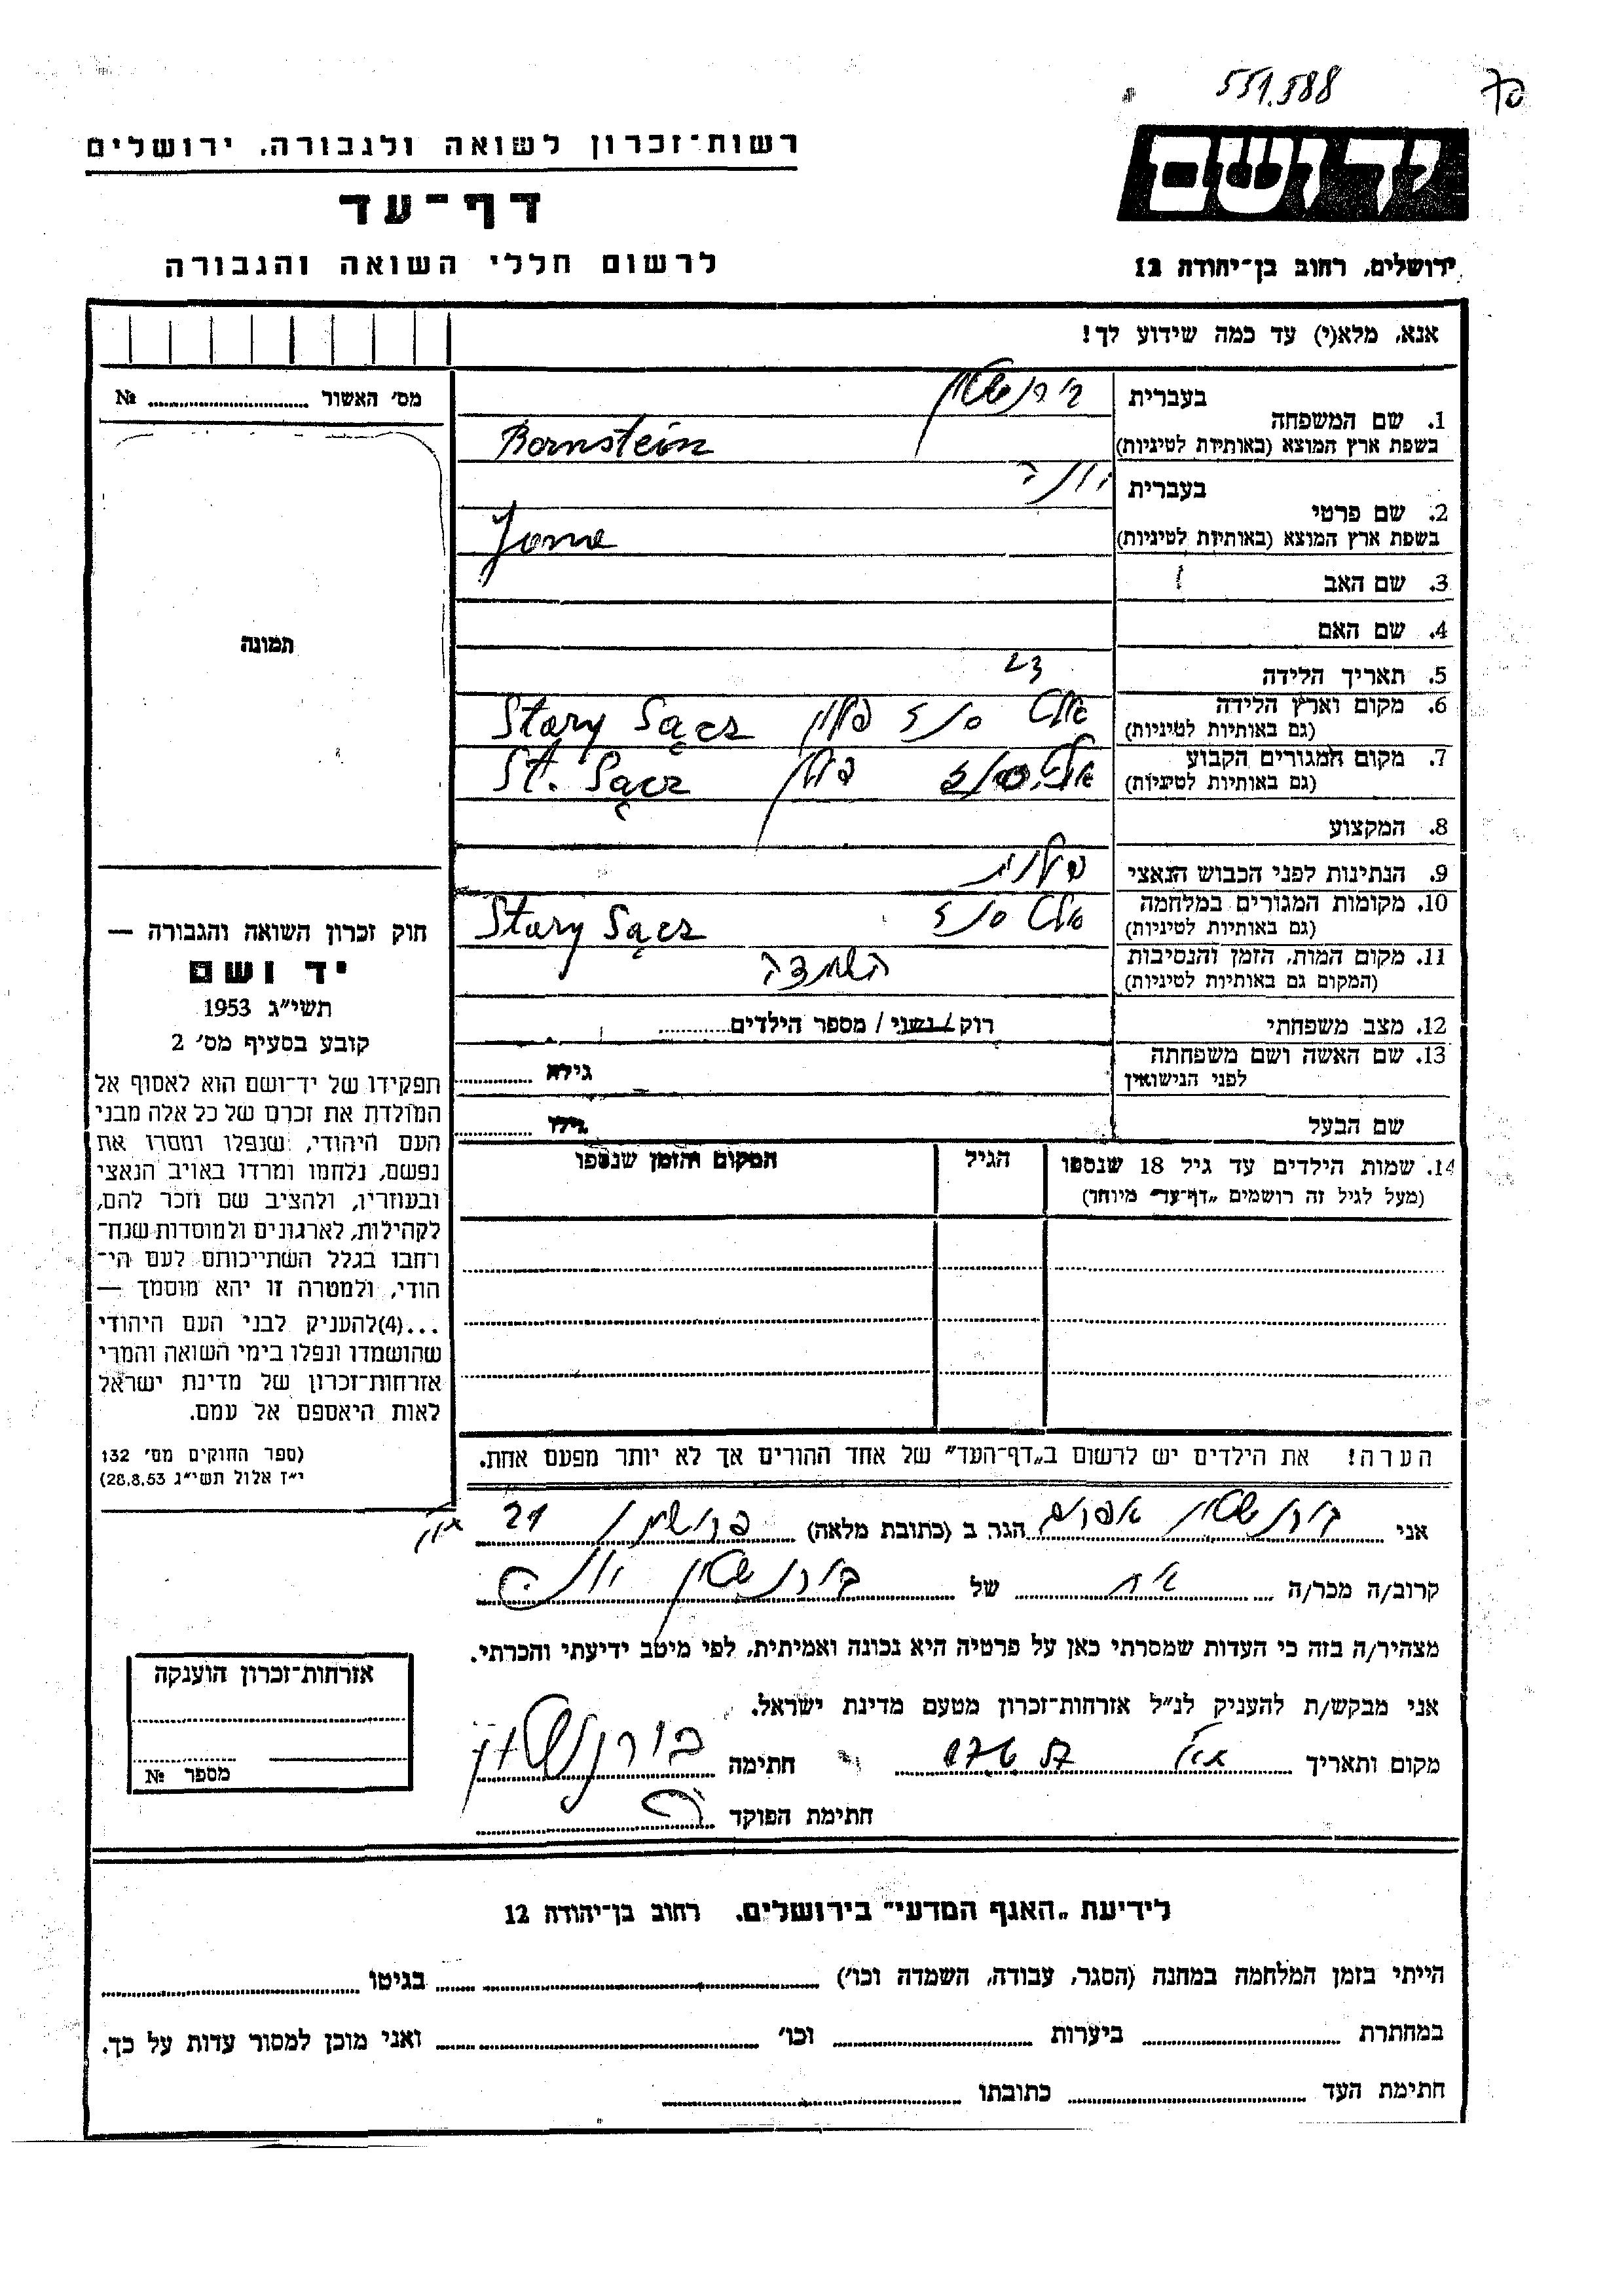 551.588
רשות־זכרון לשואה ולגבורה, ירושלים
דף־עד
לרשום חללי השואה והגבורה
יד ושם
ירושלים, רחוב בן־יהודה 12
אנא, מלא(י) עד כמה שידוע לך!
מס׳ האשור № 
תמונה
חוק זכרון השואה והגבורה —
יד ושם
תשי״ג 1953
קובע בסעיף מס׳ 2
תפקידו של יד־ושם הוא לאסוף אל
המולדת את זכרם של כל אלה מבני
העם היהודי, שנפלו ומסרו את
נפשם, נלחמו ומרדו באויב הנאצי
ובעוזריו, ולהציב שם וזכר להם,
לקהילות, לארגונים ולמוסדות שנח־
רחבו בגלל השתייכותם לעם הי־
הודי, ולמטרה זו יהא מוסמך —
...(4)להעניק לבני העם היהודי
שהושמדו ונפלו בימי השואה והמרי
אזרחות־זכרון של מדינת ישראל
לאות היאספם אל עמם.
(ספר החוקים מס׳ 132
י״ז אלול תשי״ג 28.8.53)
1. שם המשפחה
בעברית בורנשטיין
בשפת ארץ המוצא (באותיות לטיניות) Bornstein
2. שם פרטי
בעברית יונה
בשפת ארץ המוצא (באותיות לטיניות) Jone
3. שם האב
4. שם האם
5. תאריך הלידה 23
6. מקום וארץ הלידה
(גם באותיות לטיניות) אלט סנז פולין Stary Sącz
7. מקום המגורים הקבוע
(גם באותיות לטיניות) אלט סנז פולין St. Sącz
8. המקצוע
9. הנתינות לפני הכבוש הנאצי פולנית
10. מקומות המגורים במלחמה
(גם באותיות לטיניות) אלט סנז Stary Sącz
11. מקום המות, הזמן והנסיבות
(המקום גם באותיות לטיניות) השמדה
12. מצב משפחתי רווק / נשוי / מספר הילדים
13. שם האשה ושם משפחתה
לפני הנישואין גילה
שם הבעל גילו
14. שמות הילדים עד גיל 18 שנספו הגיל המקום והזמן שנספו
(מעל לגיל זה רושמים „דף־עד״ מיוחד)
הערה! את הילדים יש לרשום ב„דף־העד״ של אחד ההורים אך לא יותר מפעם אחת.
אני בורנשטיין אפרים הגר ב (כתובת מלאה) 21
קרוב/ה מכר/ה אח של בורנשטיין יונה
מצהיר/ה בזה כי העדות שמסרתי כאן על פרטיה היא נכונה ואמיתית, לפי מיטב ידיעתי והכרתי.
אני מבקש/ת להעניק לנ״ל אזרחות־זכרון מטעם מדינת ישראל.
מקום ותאריך חתימה בורנשטיין
חתימת הפוקד
אזרחות־זכרון הוענקה
מספר №
לידיעת „האגף המדעי״ בירושלים, רחוב בן־יהודה 12
הייתי בזמן המלחמה במחנה (הסגר, עבודה, השמדה וכו׳) בגיטו
במחתרת ביערות וכו׳ ואני מוכן למסור עדות על כך.
חתימת העד כתובתו